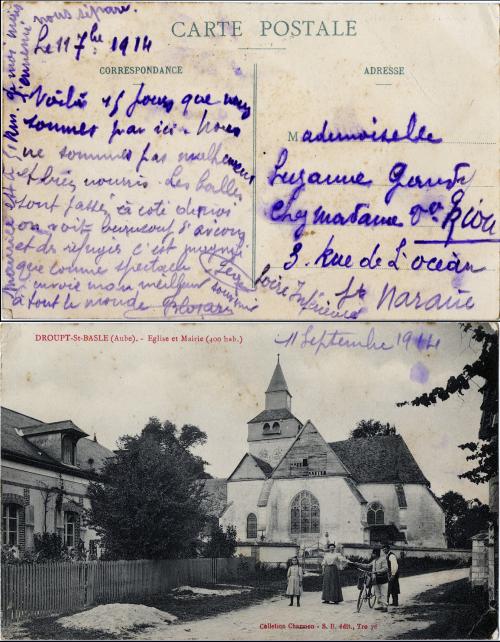 nous sépare.
CARTE POSTALE
Le 11 7bre 1914
CORRESPONDANCE
ADRESSE
Voilà 15 jours que nous
sommes par ici. Nous
ne sommes pas malheureux
et bien nourris. Les balles
sont passé à côté de nous
on voit beaucoup d'
et des refugiés c'est
que comme spectacle
envoie mon meilleur souvenir
à tout le monde
Mademoiselle
Suzanne
Chez Madame Vve Riou
3. Rue de L'océan
St Nazaire
Loire Inférieure
Maurice est à
Kms. de moi mais
l'ennemi
DROUPT-St-BASLE (Aube). - Eglise et Mairie (400 hab.)
11 Septembre 1914
Colletion Channon - S. B. édit., Tro ye